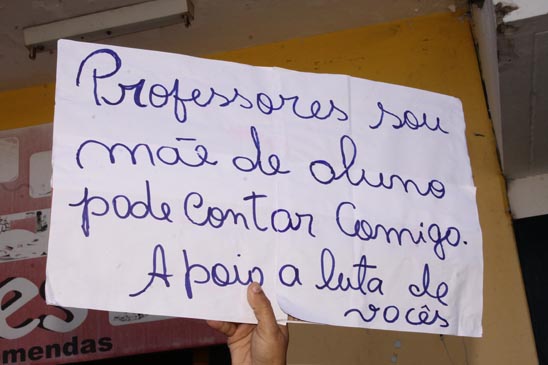 Professores sou
mãe de aluno
pode contar comigo.
Apoio a luta de
vocês
es
mendas